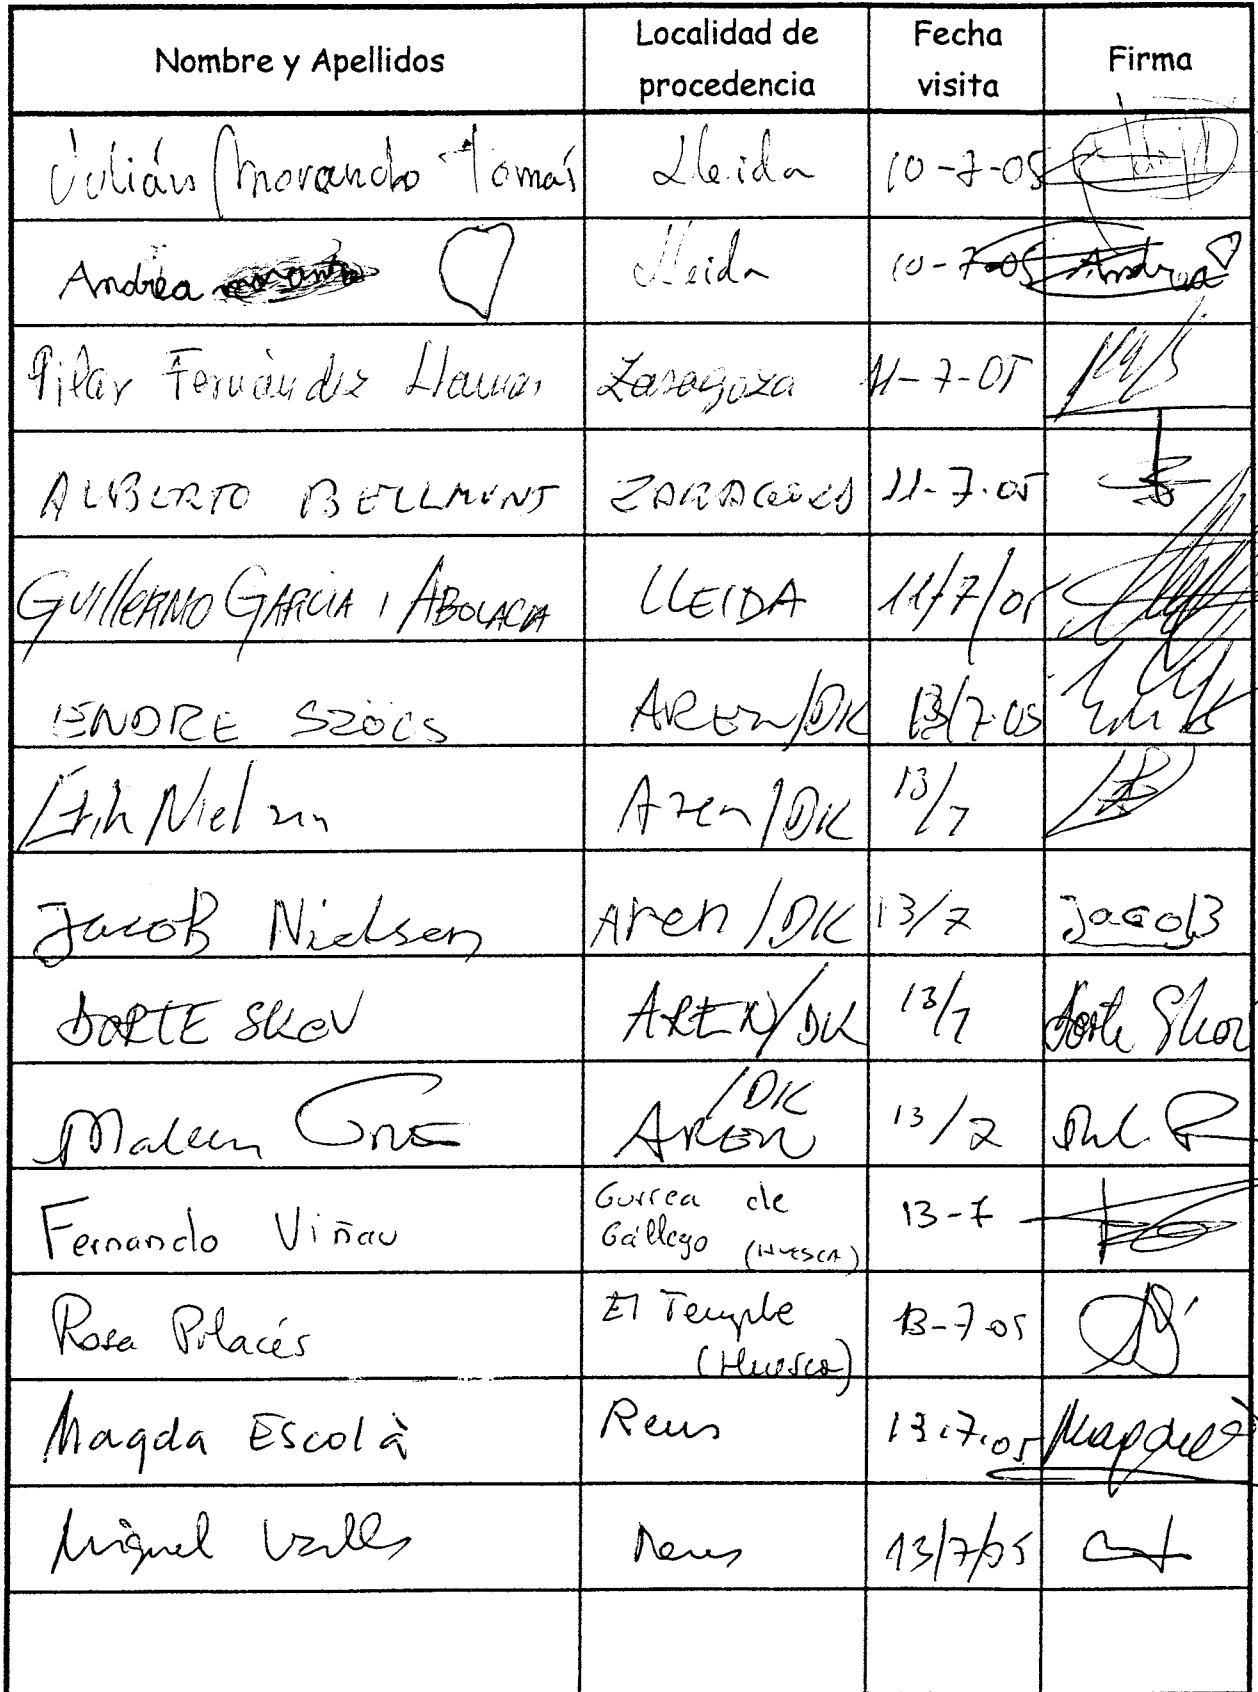 Nombre y Apellidos Localidad de procedencia Fecha visita Firma
Julián Morancho Tomás Lleida 10-7-05
Andrea Lleida 10-7-05 Andrea
Pilar Fernández Llamas Zaragoza 11-7-05
ALBERTO BELLMUNT ZARAGOZA 11-7-05
GUILLERMO GARCIA i LLEIDA 11/7/05
ENDRE SZÖCS AREN/DK 13/7-05
Erik Nielsen Aren/DK 13/7
JacoB Nielsen Aren/DK 13/7 JacoB
DORTE SKOV AREN/DK 13/7 Dorte Skov
/DK
AREN 13/7
Fernando Viñau Gurrea de Gállego (HUESCA) 13-7
Rosa Polacés El Temple (Huesca) 13-7-05
Magda Escolà Reus 13.7.05 Magda
Miquel Valls Reus 13/7/05